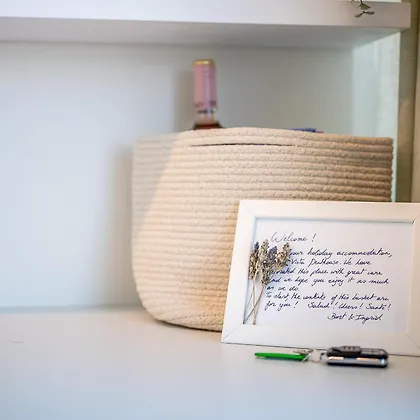 Welcome!
your holiday accommodation,
Vista Penthouse. We have
this place with great care
and we hope you enjoy it as much
as we do.
To start, the contents of this basket are
for you! Salud! Cheers! Santé!
Bart & Ingrid